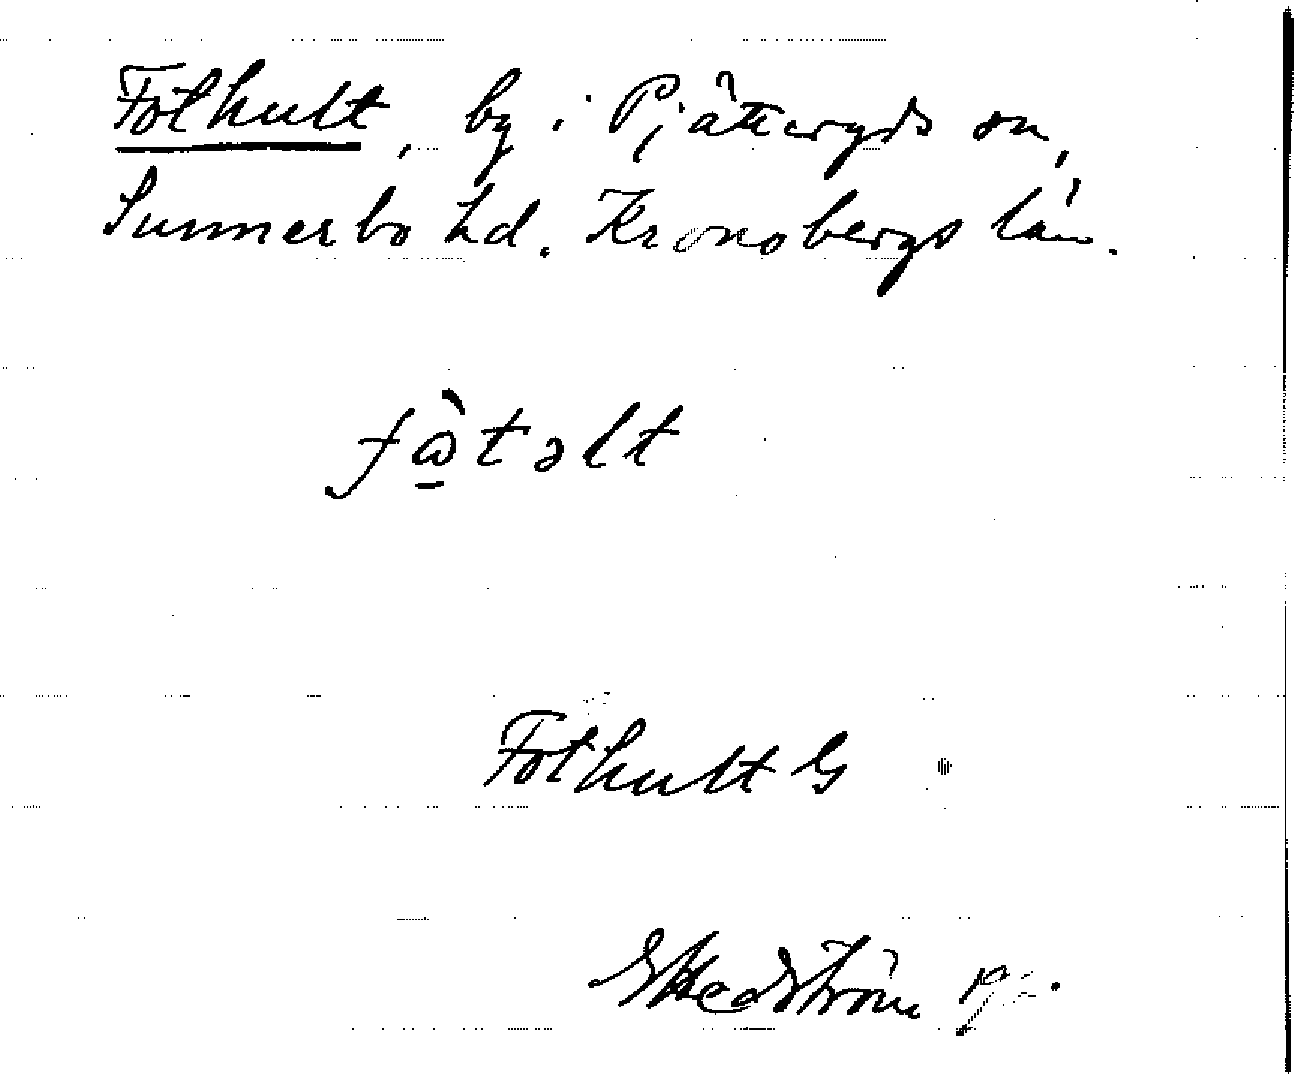 Fothult, by i Pjätteryds sn,
Sunnerbo hd. Kronobergs län.
fὼ̠təlt
Fothult G
G Hedström